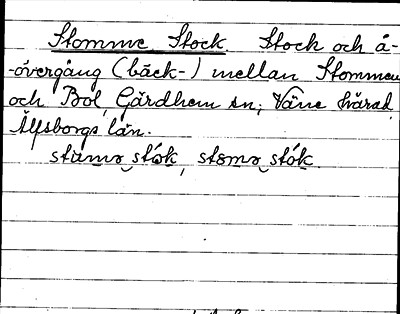 Stomme Stock. Stock och å-
-övergång (bäck-) mellan Stommen
och Bol, Gärdhem sn, Väne härad,
Älfsborgs län.
stumə stók, stomə stók.